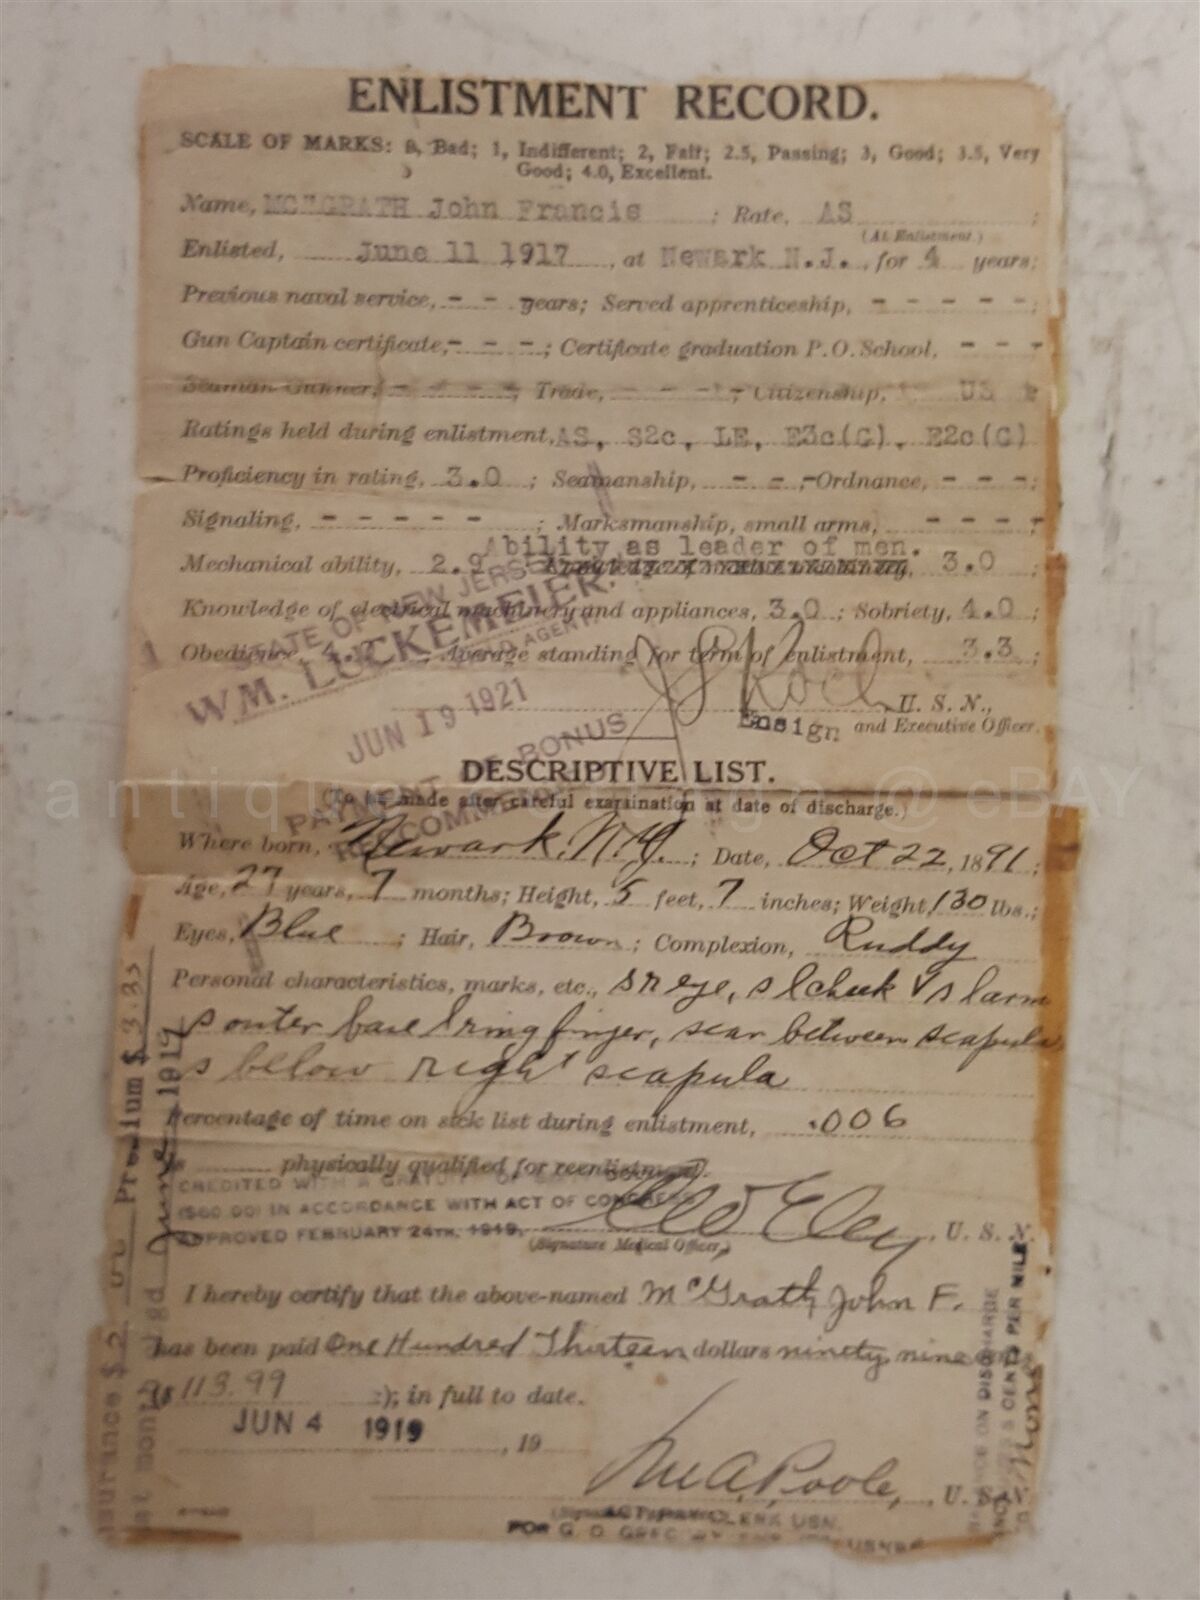 ENLISTMENT RECORD.
SCALE OF MARKS: 0, Bad; 1, Indifferent; 2, Fair; 2.5, Passing; 3, Good; 3.5, Very
Good; 4.0, Excellent.
Name, McGRATH John Francis ; Rate, AS ;
(At Enlistment.)
Enlisted, June 11 1917 , at Newark N.J. , for 4 years;
Previous naval service, - - years; Served apprenticeship, - - - - - ;
Gun Captain certificate, - - - ; Certificate graduation P. O. School, - - -
Seaman Gunner, - - - - ; Trade, - - - - ; Citizenship, US
Ratings held during enlistment, AS, S2c, LE, E3c(G), E2c(G)
Proficiency in rating, 3.0 ; Seamanship, - - ; Ordnance, - - - ;
Signaling, - - - - - ; Marksmanship, small arms, - - - -
Ability as leader of men.
Mechanical ability, 2.9 3.0
Knowledge of electrical machinery and appliances, 3.0 ; Sobriety, 4.0 ;
Obedience, ; Average standing for term of enlistment, 3.3 ;
STATE OF NEW JERSEY
WM. LUCKEMEIER.
AGENT.
U. S. N.,
Ensign and Executive Officer.
JUN 19 1921
PAYMENT OF BONUS
RECOMMENDED
DESCRIPTIVE LIST.
(To be made after careful examination at date of discharge.)
Where born, Newark, N.J. ; Date, Oct 22, 1891 ;
Age, 27 years, 7 months; Height, 5 feet, 7 inches; Weight, 130 lbs.;
Eyes, Blue ; Hair, Brown ; Complexion, Ruddy
Personal characteristics, marks, etc., s r eye, s l cheek & s l arm
s outer base l ring finger, scar between scapula
s below right scapula
Percentage of time on sick list during enlistment, .006
physically qualified for reenlistment.
CREDITED WITH A GRATUITY OF SIXTY DOLLARS
($60.00) IN ACCORDANCE WITH ACT OF CONGRESS
APPROVED FEBRUARY 24TH, 1919. U. S. N.
(Signature Medical Officer,)
I hereby certify that the above-named McGrath, John F.
has been paid One Hundred Thirteen dollars ninety nine
($ 113.99 ), in full to date.
JUN 4 1919 , 19
M. A. Poole, U. S. N.
ACT. PAY CLERK USN.
FOR G. O.
Insurance $ Premium $ 3.35
Last month June 1919
ON DISCHARGE
5 CENTS PER MILE
antique @ eBAY